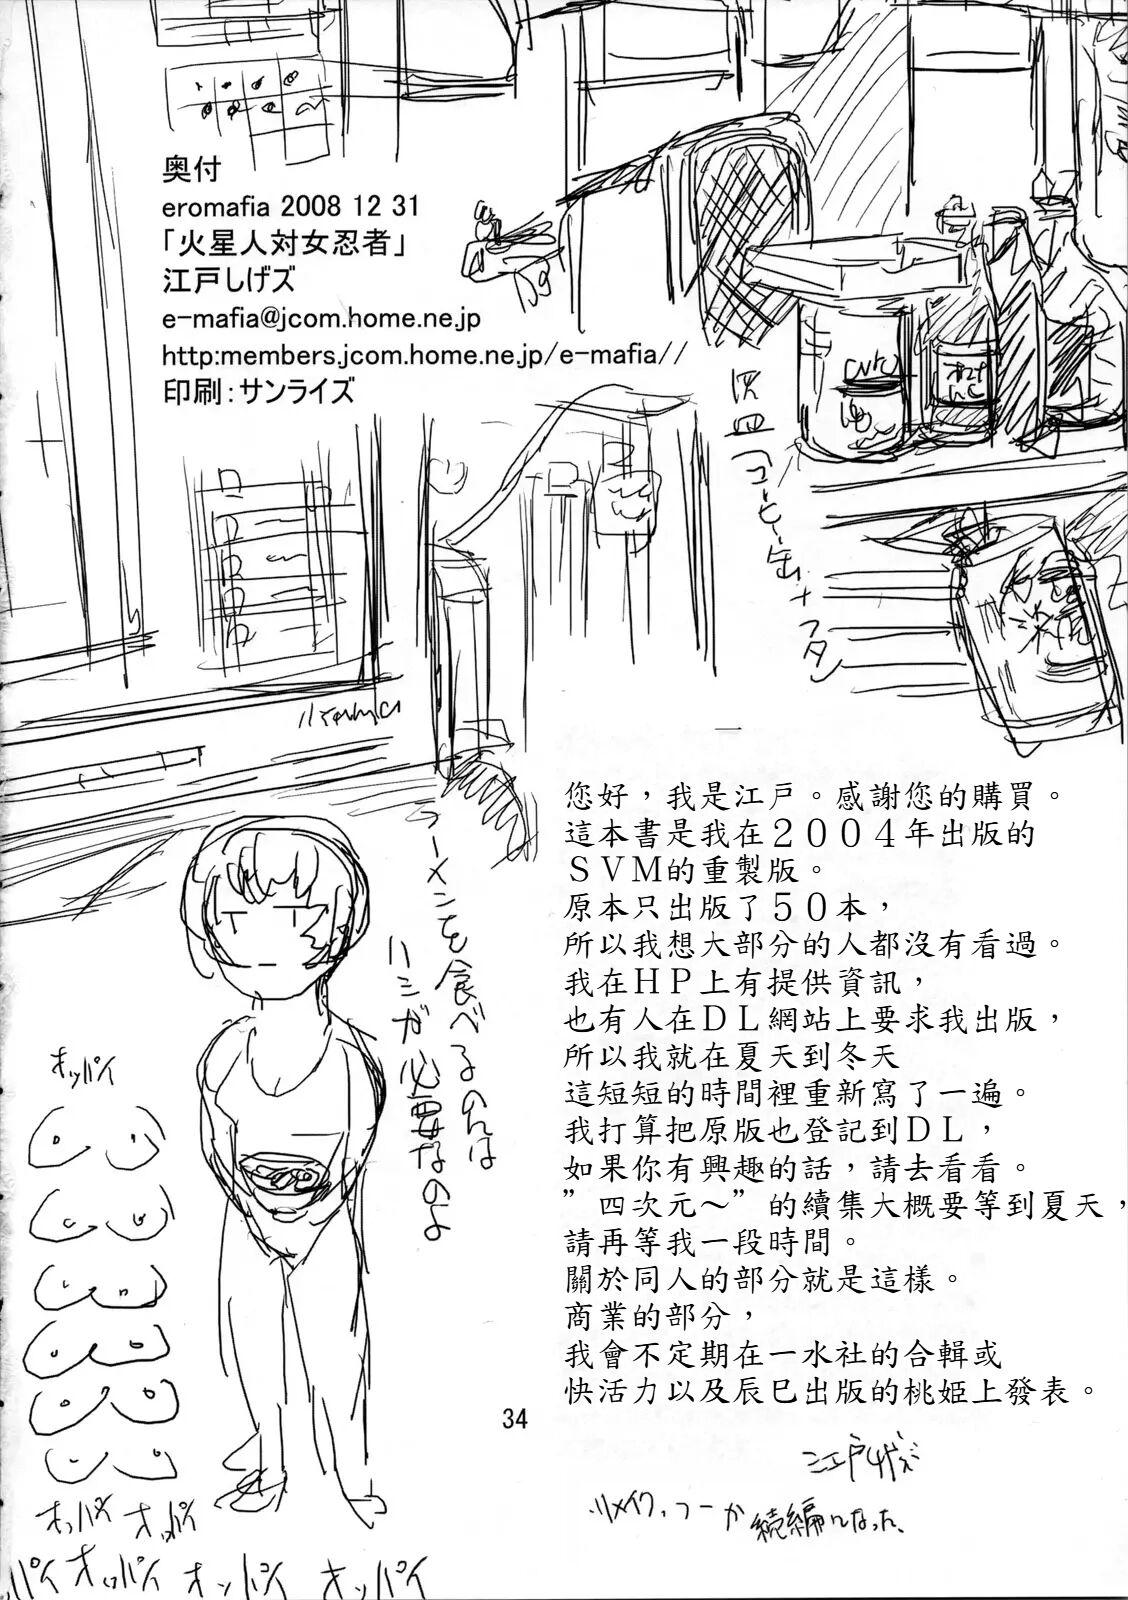 奥付
eromafia 2008 12 31
「火星人対女忍者」
江戸しげズ
e-mafia@jcom.home.ne.jp
http:members.jcom.home.ne.jp/e-mafia//
印刷：サンライズ
灰皿
コーヒー缶+フタ
ラーメンを食べるのには
ハシが必要なのよ
オッパイ
您好，我是江戸。感謝您的購買。
這本書是我在２００４年出版的
ＳＶＭ的重製版。
原本只出版了５０本，
所以我想大部分的人都沒有看過。
我在ＨＰ上有提供資訊，
也有人在ＤＬ網站上要求我出版，
所以我就在夏天到冬天
這短短的時間裡重新寫了一遍。
我打算把原版也登記到ＤＬ，
如果你有興趣的話，請去看看。
”四次元～”的續集大概要等到夏天，
請再等我一段時間。
關於同人的部分就是這樣。
商業的部分，
我會不定期在一水社的合輯或
快活力以及辰巳出版的桃姫上發表。
34
江戸しげズ
リメイク、つーか続編になった、
オッパイ オッパイ
ッパイ オッパイ オッパイ オッパイ